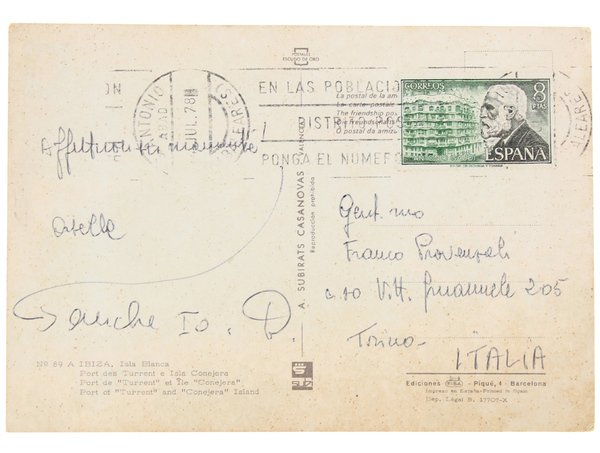 POSTALES
ESCUDO DE ORO
EN LAS POBLACIO
DISTR
PONGA EL NUMER
S. ANTONIO ABAD
JUL.78
BALEARES
La postal de la am
La carte postale
The friendship po
Die Freundschafts
O postal da amiza
CORREOS
8
PTAS
ESPAÑA
A. SUBIRATS CASANOVAS (VALENCIA)
Reproducción prohibida
Gent.mo
Franco Provenzali
c.so V. Emanuele 205
Torino
ITALIA
Nº 69 A IBIZA. Isla Blanca
Port des Turrent e Isla Conejera
Port de "Turrent" et Île "Conejera"
Port of "Turrent" and "Conejera" Island
Ediciones FISA - Piqué, 4 - Barcelona
Impreso en España-Printed in Spain
Dep. Legal B. 17707-X